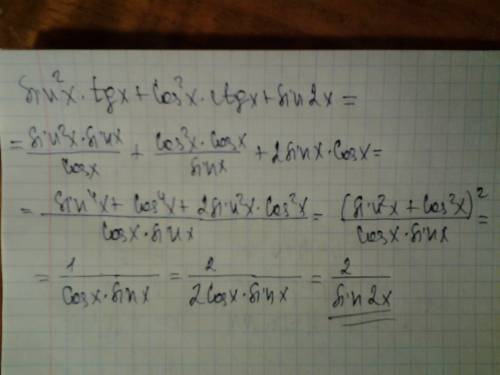 sin²x · tgx + cos²x · ctgx + sin 2x =
= sin²x · sinx / cosx + cos²x · cosx / sinx + 2 sinx · cosx =
= sin⁴x + cos⁴x + 2 sin²x · cos²x / cosx · sinx = (sin²x + cos²x)² / cosx · sinx =
= 1 / cosx · sinx = 2 / 2cosx · sinx = 2 / sin 2x